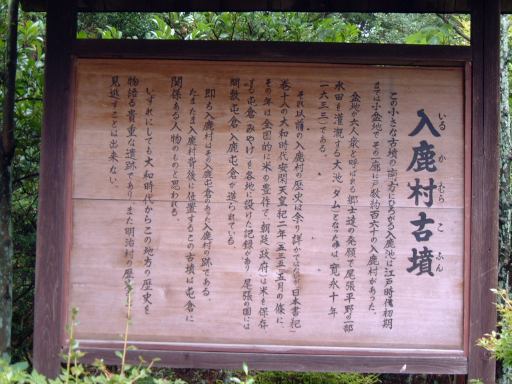 入鹿村古墳
いるかむらこふん
この小さな古墳の南方にひろがる入鹿池は江戸時代初期
までは小盆地でその一部に戸数約百六十の入鹿村があった。
盆地が六人衆と呼ばれる郷士達の発願で尾張平野の一部
水田を灌漑する大池(ダム)となった時は寛永十年
(一六三三)である。
それ以前の入鹿村の歴史は余り詳かでないが「日本書紀」
巻十八の大和時代安閑天皇紀二年(五三五)五月の條に、
その年は全国的に米の豊作で、朝廷(政府)は米を保存
する屯倉(みやけ)を各地に設けた記録があり尾張の国には
間敷屯倉、入鹿屯倉が造られている。
即ち入鹿村はまた入鹿屯倉のあった入鹿村の跡である
たまたま入鹿村背後に位置するこの古墳は屯倉に
関係ある人物のものと思われる。
いずれにしても大和時代からこの地方の歴史を
物語る貴重な遺跡であり、また明治村の歴史
見逃すことは出来ない。